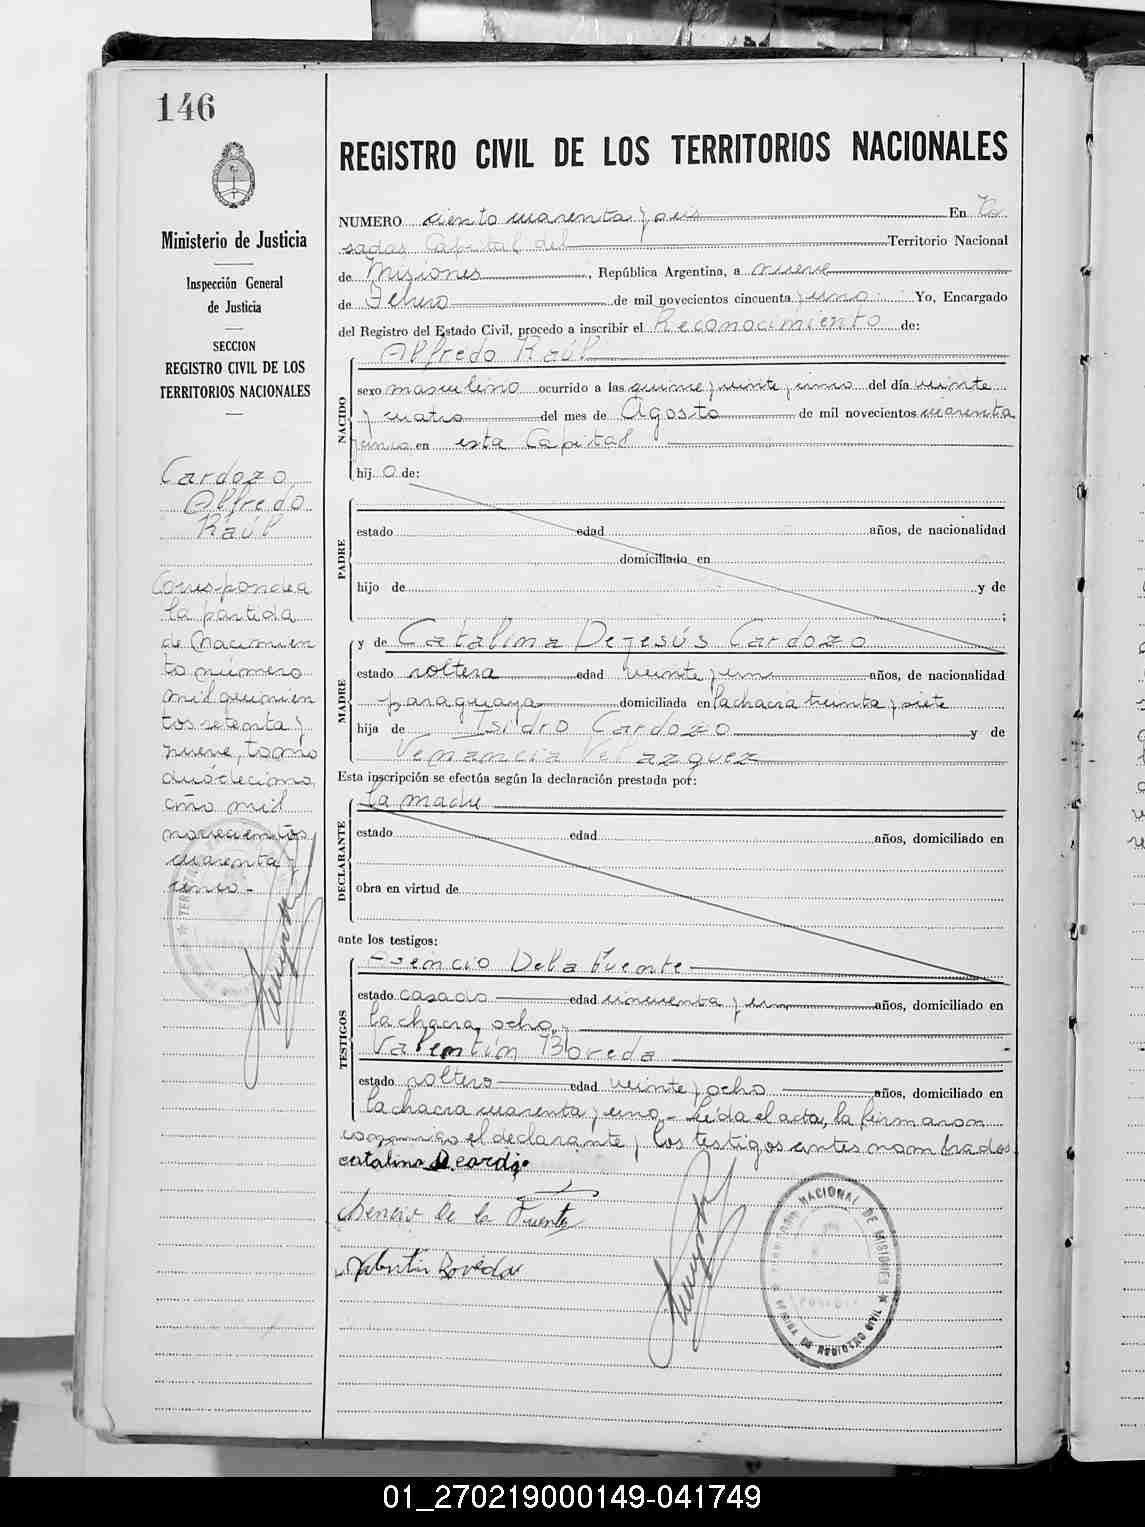 146
Ministerio de Justicia
Inspección General
de Justicia
SECCION
REGISTRO CIVIL DE LOS
TERRITORIOS NACIONALES
Cardozo
Alfredo
Raúl
Corresponde a
la partida
de Nacimien
to número
mil quinien
tos setenta y
nueve, tomo
duodécimo,
año mil
novecientos
cuarenta y
cinco.-
REGISTRO CIVIL DE LOS TERRITORIOS NACIONALES
NUMERO ciento cuarenta y seis En Po
sadas Capital del Territorio Nacional
de Misiones, República Argentina, a nueve
de Febrero de mil novecientos cincuenta y uno Yo, Encargado
del Registro del Estado Civil, procedo a inscribir el Reconocimiento de:
Alfredo Raúl
NACIDO
sexo masculino ocurrido a las quince y veinte y cinco del día veinte
y cuatro del mes de Agosto de mil novecientos cuarenta
y cinco en esta Capital
hij.o de:
PADRE
estado edad años, de nacionalidad
domiciliado en
hijo de y de
;
MADRE
y de Catalina Dejesús Cardozo
estado soltera edad veinte y un años, de nacionalidad
paraguaya domiciliada en la chacra treinta y siete
hija de Isidro Cardozo y de
Venancia Velazquez
Esta inscripción se efectúa según la declaración prestada por:
La madre
DECLARANTE
estado edad años, domiciliado en
obra en virtud de
ante los testigos:
TESTIGOS
Asencio De la Fuente
estado casado edad cincuenta y un años, domiciliado en
la chacra ocho y
Valentín Boveda
estado soltero edad veinte y ocho años, domiciliado en
la chacra cuarenta y uno.- Leída el acta, la firmaron
conmigo el declarante y los testigos antes nombrados
catalina D. cardozo
Asencio De la Fuente
Valentin Boveda
NACIONAL DE MISIONES
01_270219000149-041749